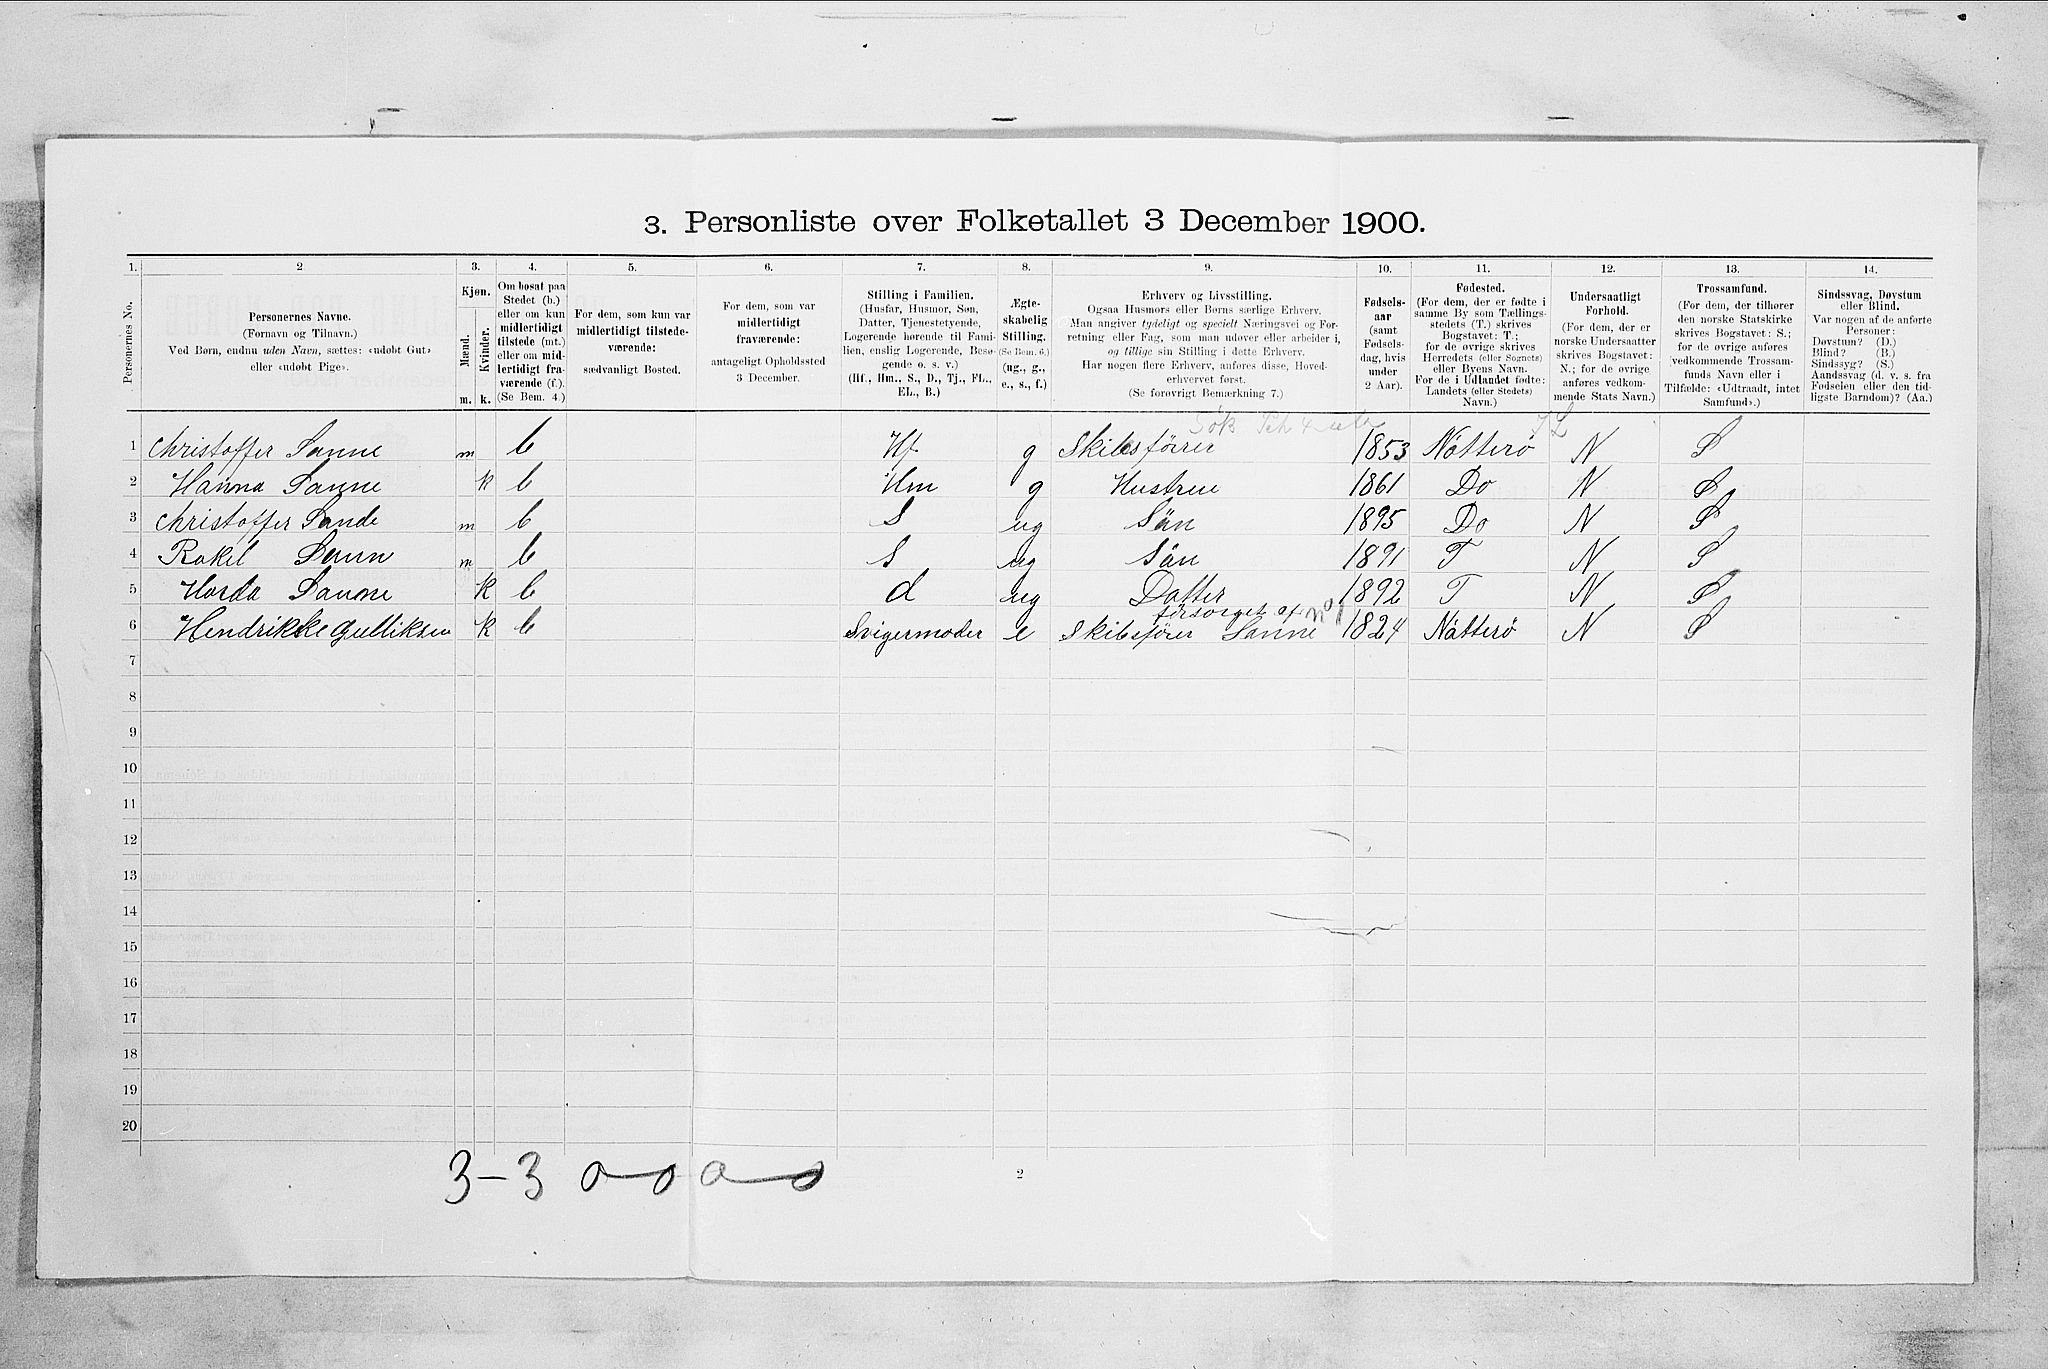 3. Personliste over Folketallet 3 December 1900.
1. 2 3. 4. 5. 6. 7. 8. 9. 10. 11. 12. 13. 14.
Personernes No.
Personernes Navne.
(Fornavn og Tilnavn.)
Ved Børn, endnu uden Navn, sættes: «udøbt Gut»
eller «udøbt Pige».
Kjøn.
Mænd.
Kvinder.
m. k.
Om bosat paa
Stedet (b.)
eller om kun
midlertidigt
tilstede (mt.)
eller om mid-
lertidigt fra-
værende (f.).
(Se Bem. 4.)
For dem, som kun var
midlertidigt tilstede-
værende:
sædvanligt Bosted.
For dem, som var
midlertidigt
fraværende:
antageligt Opholdssted
3 December.
Stilling i Familien.
(Husfar, Husmor, Søn,
Datter, Tjenestetyende,
Logerende hørende til Fami-
lien, enslig Logerende, Besø-
gende o. s. v.)
(Hf., Hm., S., D., Tj., FL.,
EL., B.)
Ægte-
skabelig
Stilling.
(Se Bem. 6.)
(ug., g.,
e., s., f.)
Erhverv og Livsstilling.
Ogsaa Husmors eller Børns særlige Erhverv.
Man angiver tydeligt og specielt Næringsvei og For-
retning eller Fag, som man udøver eller arbeider i,
og tillige sin Stilling i dette Erhverv.
Har nogen flere Erhverv, anføres disse, Hoved-
erhvervet først.
(Se forøvrigt Bemærkning 7.)
Fødsels-
aar
(samt
Fødsels-
dag, hvis
under
2 Aar).
Fødested.
(For dem, der er fødte i
samme By som Tællings-
stedets (T.) skrives
Bogstavet: T.;
for de øvrige skrives
Herredets (eller Sognets)
eller Byens Navn.
For de i Udlandet fødte:
Landets (eller Stedets)
Navn.)
Undersaatligt
Forhold.
(For dem, der er
norske Undersaatter
skrives Bogstavet:
N.; for de øvrige
anføres vedkom-
mende Stats Navn.)
Trossamfund.
(For dem, der tilhører
den norske Statskirke
skrives Bogstavet: S.;
for de øvrige anføres
vedkommende Trossam-
funds Navn eller i
Tilfælde: «Udtraadt, intet
Samfund».)
Sindssvag, Døvstum
eller Blind.
Var nogen af de anførte
Personer:
Døvstum? (D.)
Blind? (B.)
Sindssyg? (S.)
Aandssvag (d. v. s. fra
Fødselen eller den tid-
ligste Barndom)? (Aa.)
1 Christoffer Sanne m b Hf g Skibsfører 1853 Nötterö N S
2 Hanna Sanne k b Hm g Hustrue 1861 Do N S
3 Christoffer Sande m b S ug Sön 1895 Do N S
4 Rakil Sann m b S ug Sön 1891 T N S
5 Horda Sanne k b d ug Datter 1892 T N S
forsorget af no 1
6 Hendrikke Gulliksen k b Svigermoder e Skibsförer Sanne 1824 Nötterö N S
7
8
9
10
11
12
13
14
15
16
17
18
19
20
3-3 0-0 0-0
2